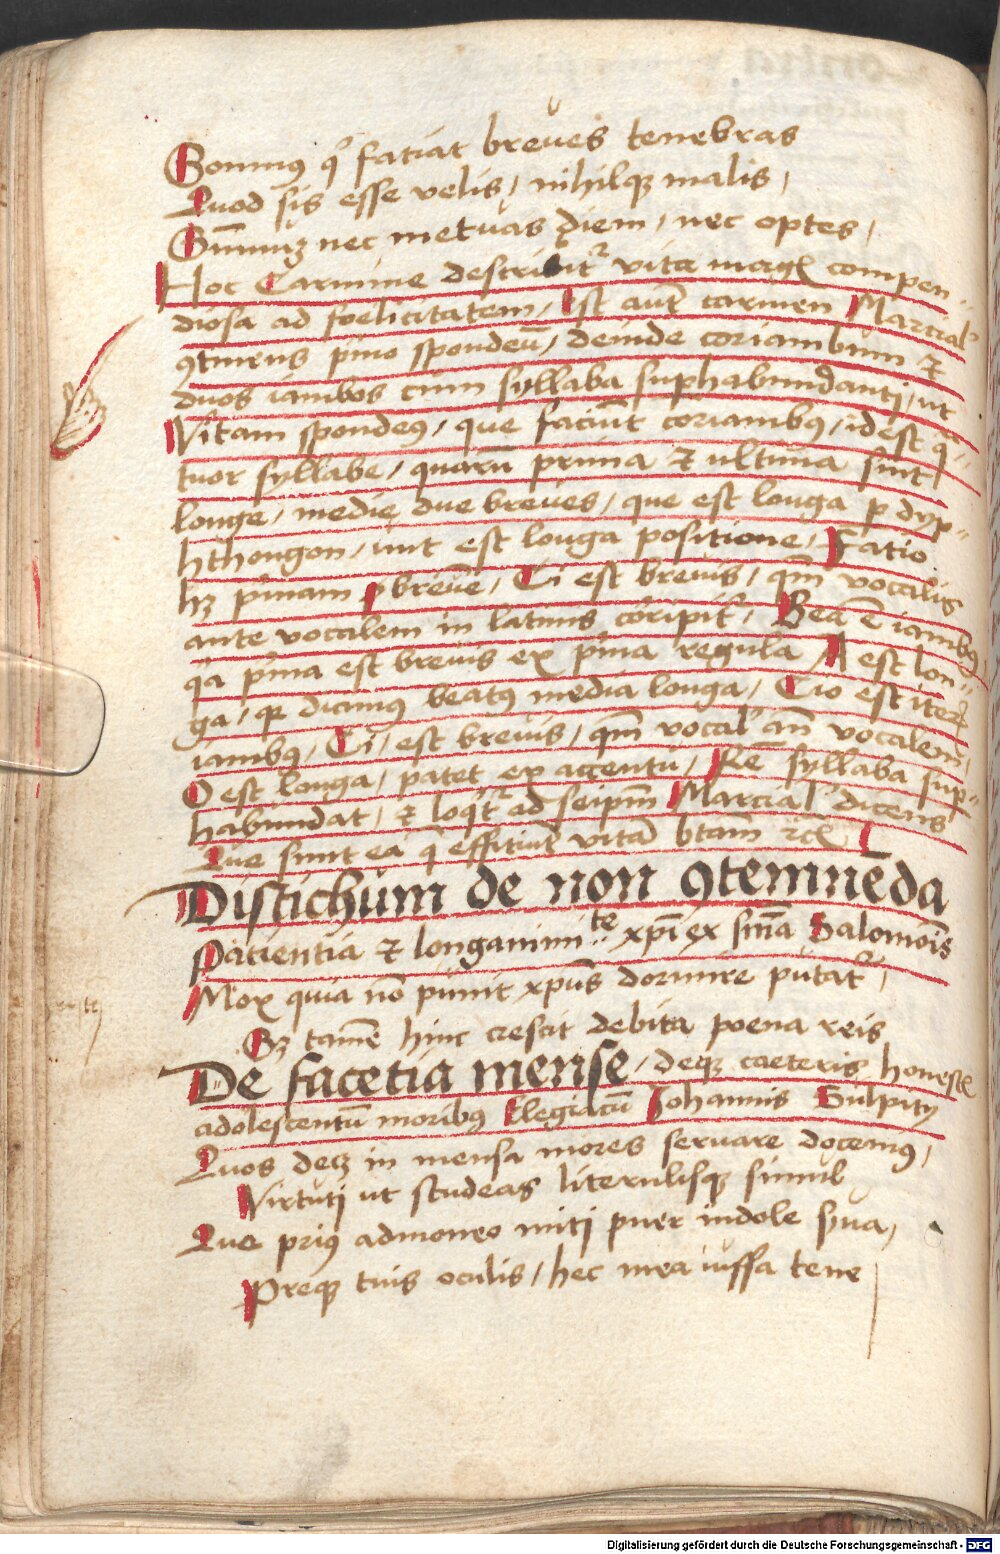 Somnus qͥ fatiat breves tenebras
Quod sis esse velis / nihilqꝫ malis /
Sum̄uꝫ nec metuas diem / nec optes /
Hoc Carmine describit᷑ vita magꝭ compen⸗
diosa ad foelicitatem / Est aut̄ carmen Marcial'
ꝯtinens pͥmo spondeū / deinde coriambum ⁊
duos iambos cum syllaba suphabundanti / ut
Vitam spondeꝰ / que faciūt coriambꝰ / idest qͣ⸗
tuor syllabe / quarū prima ⁊ ultima sint
longe / medie due breves / que est longa ꝑ dyp⸗
hthongon / iunt est longa positione / Fatio
hꝫ pͥmam brevē / Ti est brevis / qm̄ vocalis
ante vocalem in latinis corͥpit᷑ / Bea ē iambꝰ
qͥa pͥma est brevis ex pͥma regula A est lon⸗
ga / qꝛ dicimus beatꝰ media longa / Tio est iteꝝ
iambꝰ / Ti / est brevis / qm̄ vocal' an̄ vocalem /
O est longa / patet ex accentu / Rē syllaba sup⸗
habundat / ⁊ loqͥt᷑ ad seipm̄ Marcial' dicens
Que sunt ea q̄ effitiūt vitā btam̄ ⁊cꝭ
Distichum de non ꝯtemnēda
Patientia ⁊ longanimi⸗te xp̄i ex sn̄ia Salomōis
Mox quia nō punit xpūs dormire putat᷑ /
Sꝫ tamē hinc crescit debita poena reis
De facetia mense / deqꝫ caeteris honestꝭ
adolescentū moribꝰ Elegiacū Johannis Sulpitij
Quos deceꝫ in mensa mores servare docemꝰ /
Virtuti ut studeas literulisqꝫ simul
Que priꝰ admoneo miti puer indole s̄ua /
Preqꝫ tuis oculis / hec mea iussa tene
Digitalisierung gefördert durch die Deutsche Forschungsgemeinschaft - DFG